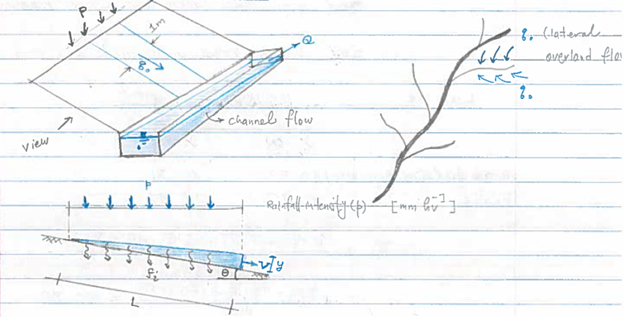 P
1m
q₀
Q
channel flow
view
q₀ (lateral
overland flow
q₀
P
Rainfall-intensity (p) [mm hr⁻¹]
v y
θ
L